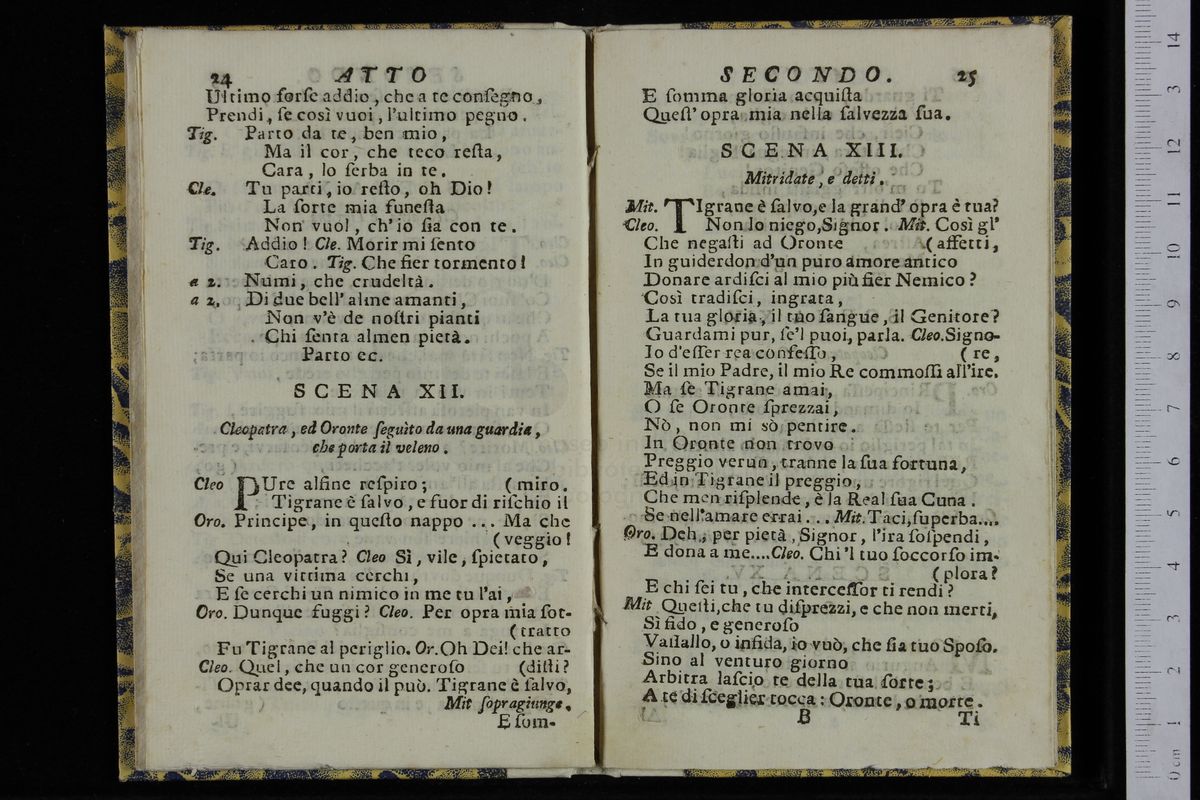 24 ATTO
Ultimo forſe addio, che a te conſegno,
Prendi, ſe così vuoi, l'ultimo pegno.
Tig. Parto da te, ben mio,
Ma il cor, che teco reſta,
Cara, lo ſerba in te.
Cle. Tu parti, io reſto, oh Dio!
La ſorte mia funeſta
Non vuol, ch'io ſia con te.
Tig. Addio! Cle. Morir mi ſento
Caro. Tig. Che fier tormento!
a 2. Numi, che crudeltà.
a 2. Di due bell' alme amanti,
Non v'è de noſtri pianti
Chi ſenta almen pietà.
Parto ec.
SCENA XII.
Cleopatra, ed Oronte ſeguito da una guardia,
che porta il veleno.
Cleo PUre alfine reſpiro; (miro.
Tigrane è ſalvo, e fuor di riſchio il
Oro. Principe, in queſto nappo ... Ma che
(veggio!
Qui Cleopatra? Cleo Sì, vile, ſpietato,
Se una vittima cerchi,
E ſe cerchi un nimico in me tu l'ai,
Oro. Dunque fuggi? Cleo. Per opra mia ſot-
(tratto
Fu Tigrane al periglio. Or. Oh Dei! che ar-
Cleo. Quel, che un cor generoſo (diſti?
Oprar dee, quando il può. Tigrane è ſalvo,
Mit ſopragiunge.
E ſom-
SECONDO. 25
E ſomma gloria acquiſta
Queſt' opra mia nella ſalvezza ſua.
SCENA XIII.
Mitridate, e detti.
Mit. TIgrane è ſalvo, e la grand' opra è tua?
Cleo. Non lo niego, Signor. Mit. Così gl'
Che negaſti ad Oronte (affetti,
In guiderdon d'un puro amore antico
Donare ardiſci al mio più fier Nemico?
Così tradiſci, ingrata,
La tua gloria, il tuo ſangue, il Genitore?
Guardami pur, ſe'l puoi, parla. Cleo. Signo-
Io d'eſſer rea confeſſo, (re,
Se il mio Padre, il mio Re commoſſi all'ire.
Ma ſe Tigrane amai,
O ſe Oronte ſprezzai,
Nò, non mi sò pentire.
In Oronte non trovo
Preggio verun, tranne la ſua fortuna,
Ed in Tigrane il preggio,
Che men riſplende, è la Real ſua Cuna.
Se nell'amare errai... Mit. Taci, ſuperba....
Oro. Deh, per pietà, Signor, l'ira ſoſpendi,
E dona a me.... Cleo. Chi 'l tuo ſoccorſo im-
(plora?
E chi ſei tu, che interceſſor ti rendi?
Mit Queſti, che tu diſprezzi, e che non merti,
Sì fido, e generoſo
Vaſſallo, o infida, io vuò, che ſia tuo Spoſo.
Sino al venturo giorno
Arbitra laſcio te della tua ſorte;
A te di ſceglier tocca: Oronte, o morte.
B Ti
0 cm 1 2 3 4 5 6 7 8 9 10 11 12 13 14